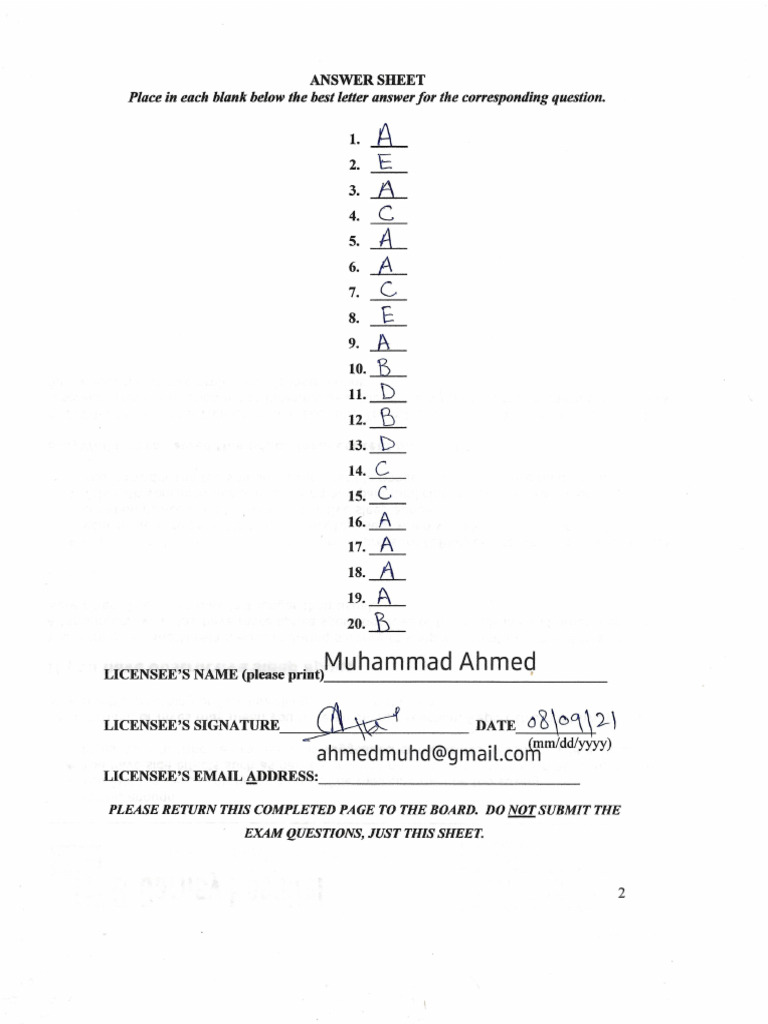 ANSWER SHEET
Place in each blank below the best letter answer for the corresponding question.
1. A
2. E
3. A
4. C
5. A
6. A
7. C
8. E
9. A
10. B
11. D
12. B
13. D
14. C
15. C
16. A
17. A
18. A
19. A
20. B
LICENSEE'S NAME (please print) Muhammad Ahmed
LICENSEE'S SIGNATURE DATE 08/09/21
(mm/dd/yyyy)
ahmedmuhd@gmail.com
LICENSEE'S EMAIL ADDRESS:
PLEASE RETURN THIS COMPLETED PAGE TO THE BOARD. DO NOT SUBMIT THE
EXAM QUESTIONS, JUST THIS SHEET.
2